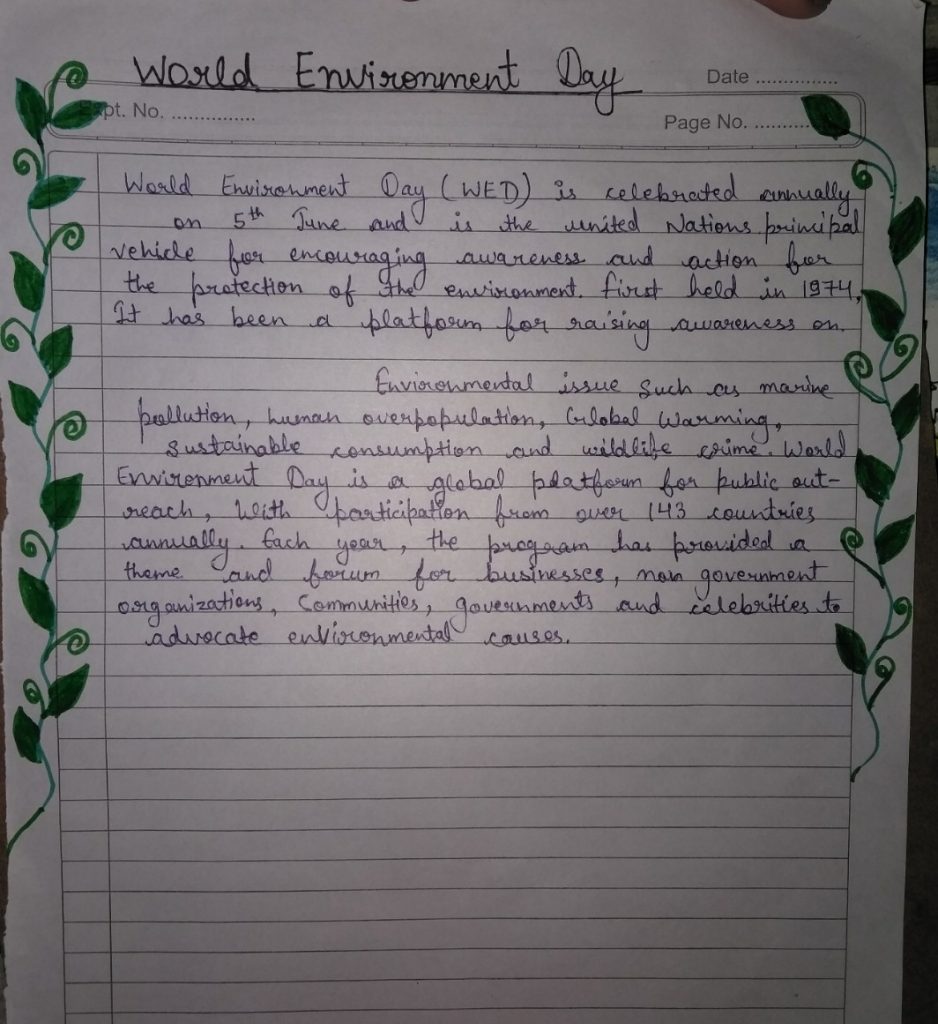 World Environment Day
Date ..............
Expt. No. ...............
Page No. ..........
World Environment Day (WED) is celebrated annually
on 5th June and is the united Nations principal
vehicle for encouraging awareness and action for
the protection of the environment. first held in 1974,
It has been a platform for raising awareness on.
Environmental issue such as marine
pollution, human overpopulation, Global Warming,
Sustainable consumption and wildlife crime. World
Environment Day is a global platform for public out-
reach, With participation from over 143 countries
annually. Each year, the program has provided a
theme and forum for businesses, non government
organizations, Communities, governments and celebrities to
advocate environmental causes.